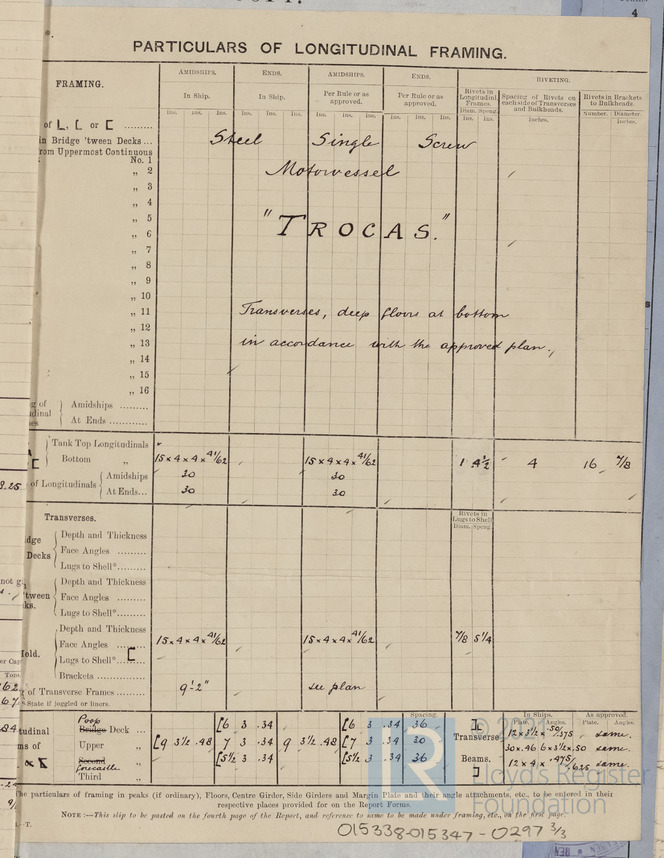 4
PARTICULARS OF LONGITUDINAL FRAMING.
FRAMING.
AMIDSHIPS. ENDS. AMIDSHIPS. ENDS. RIVETING.
In Ship. In Ship. Per Rule or as approved. Per Rule or as approved.
Rivets in Longitudinal Frames. Spacing of Rivets on each side of Transverses and Bulkheads. Rivets in Brackets to Bulkheads.
Ins. Ins. Ins. Ins. Ins. Ins. Ins. Ins. Ins. Ins. Ins. Ins. Diam. Spcng. Inches. Number. Diameter. Inches.
of L, [ or [ .........
in Bridge 'tween Decks ... Steel Single Screw
rom Uppermost Continuous
No. 1
„ 2 Motorvessel
„ 3
„ 4
„ 5
„ 6 "TROCAS."
„ 7
„ 8
„ 9
„ 10
„ 11 Transverses, deep floors at bottom
„ 12
„ 13 in accordance with the approved plan.
„ 14
„ 15
„ 16
g of Amidships .........
dinal
At Ends .........
Tank Top Longitudinals
Bottom „ 15 x 4 x 4 x 41/62 15 x 4 x 4 x 41/62 1 4½ 4 16 7/8
of Longitudinals Amidships 30 30
At Ends... 30 30
9.25
Transverses. Rivets in Lugs to Shell Diam. Spcng.
dge Decks Depth and Thickness
Face Angles .........
Lugs to Shell*.........
'tween ks. Depth and Thickness
Face Angles .........
Lugs to Shell*.........
Hold. Depth and Thickness
Face Angles ......... 15 x 4 x 4 x 41/62 15 x 4 x 4 x 41/62 7/8 5¼
Lugs to Shell*......... [
Brackets .........
g of Transverse Frames ......... 9'-2" see plan
* State if joggled or liners.
Spacing. In Ships. As approved.
Plate. Angles. Plate. Angles.
tudinal Poop Bridge Deck ... [6 3 .34 [6 3 .34 36 12 x 3½ x .50/.375 same.
ms of Upper „ [9 3½ .48 7 3 .34 9 3½ .48 [7 3 .34 30 Transverse 30 x .46 6 x 3½ x .50 same.
Second forecastle „ [5½ 3 .34 [5½ 3 .34 36 Beams. 12 x 4 x .475/.625 same.
Third „
he particulars of framing in peaks (if ordinary), Floors, Centre Girder, Side Girders and Margin Plate and their angle attachments, etc., to be entered in their
respective places provided for on the Report Forms.
NOTE:—This ship to be posted on the fourth page of the Report, and reference to same to be made under framing, etc., on the first page.
015338-015347-0297 3/3
© 2021
Lloyd's Register
Foundation